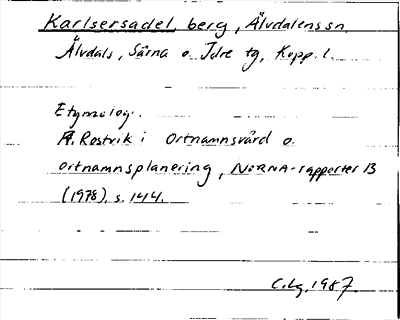 Karlsersadel, berg, Älvdalens sn,
Älvdals, Särna o. Idre tg, Kopp. l.
Etymologi.
A. Rostvik i Ortnamnsvård o.
ortnamnsplanering, NORNA-rapporter 13
(1978), s. 144.
C.Lg. 1987.